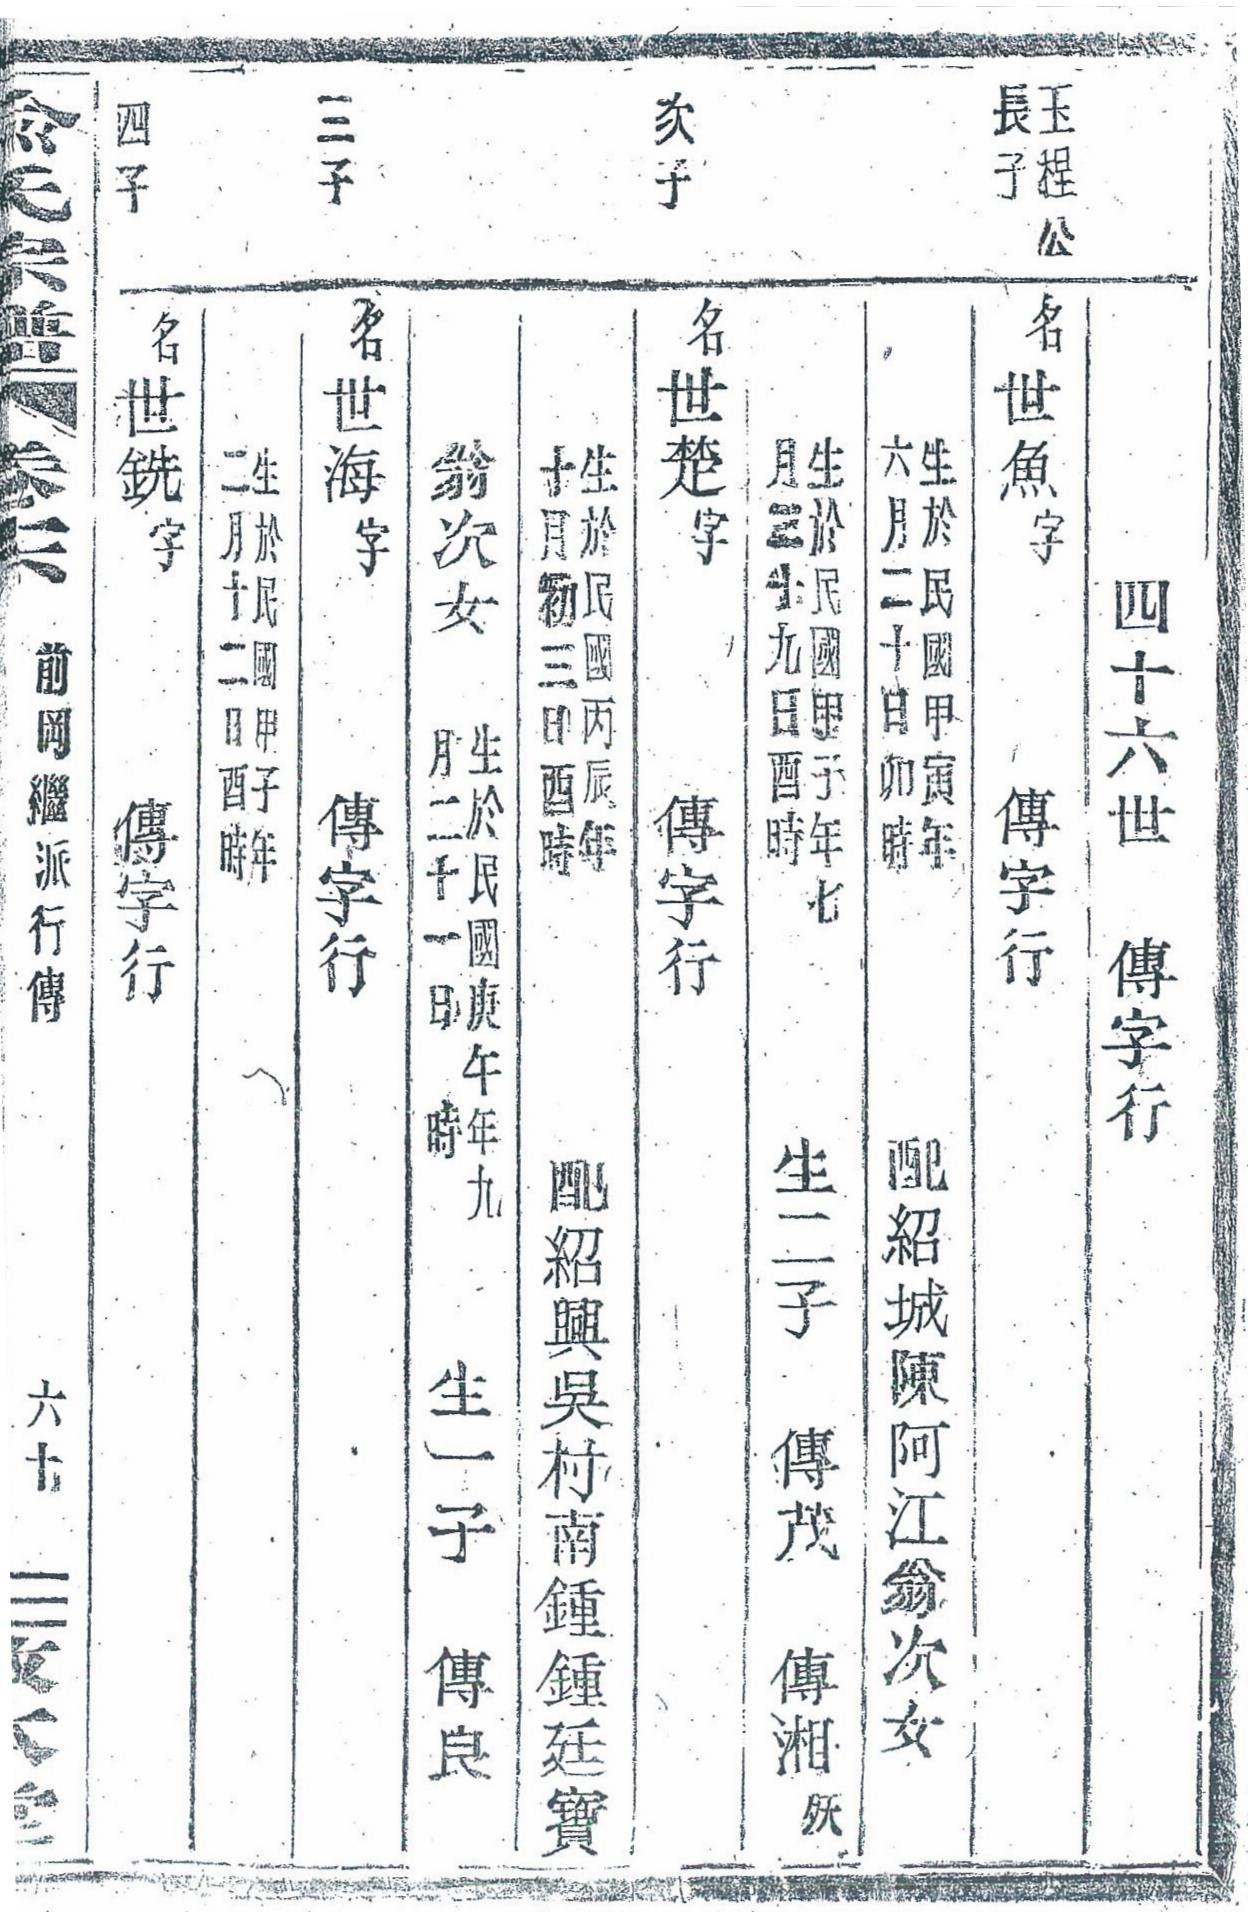 四十六世 傳字行
玉桯公
長子
名世魚字 傳字行
生於民國甲寅年
六月二十日卯時
配紹城陳阿江翁次女
生於民國甲子年七
月十九日酉時
生二子 傳茂 傳湘 殀
次子
名世楚字 傳字行
生於民國丙辰年
十月初三日酉時
配紹興吳村南鍾鍾廷寶
翁次女
生於民國庚午年九
月二十一日 時
生一子 傳良
三子
名世海字 傳字行
生於民國甲子年
二月十二日酉時
四子
名世銑字 傳字行
俞氏宗譜 卷 前岡繼派行傳 六十